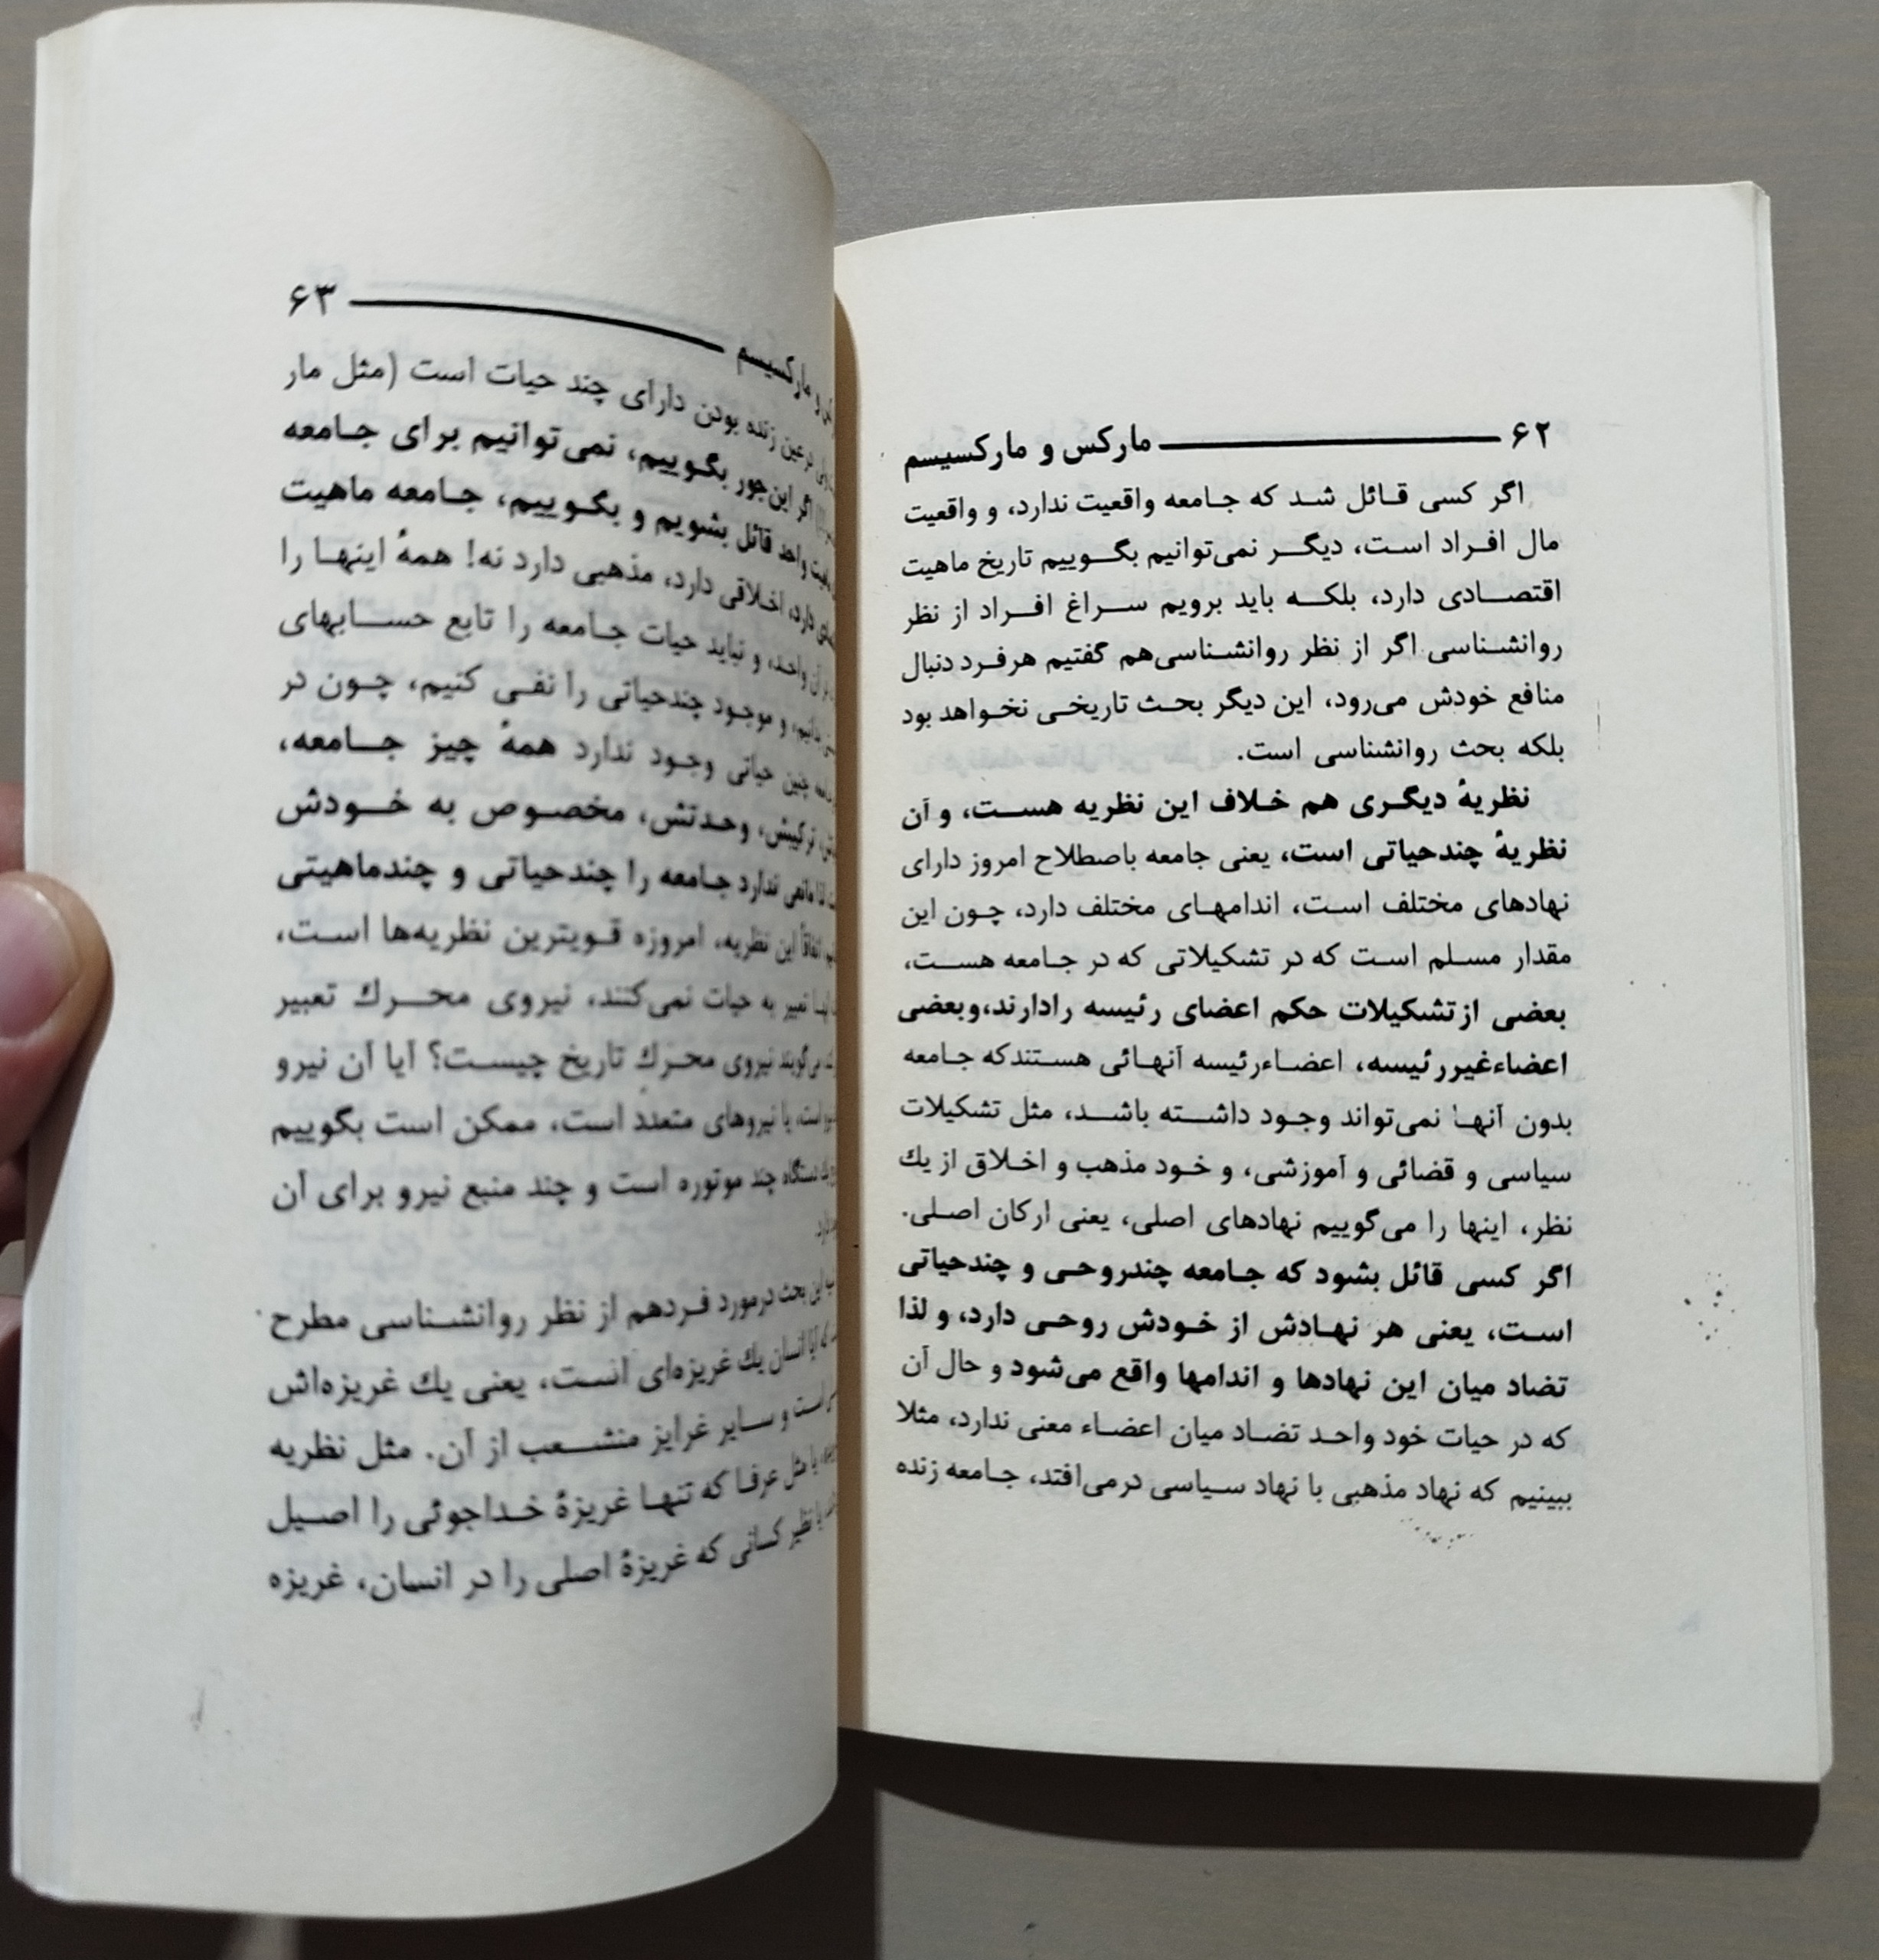 ۶۲ مارکس و مارکسیسم
اگر کسی قائل شد که جامعه واقعیت ندارد، و واقعیت
مال افراد است، دیگر نمی‌توانیم بگوییم تاریخ ماهیت
اقتصادی دارد، بلکه باید برویم سراغ افراد از نظر
روانشناسی اگر از نظر روانشناسی‌هم گفتیم هرفرد دنبال
منافع خودش می‌رود، این دیگر بحث تاریخی نخواهد بود
بلکه بحث روانشناسی است.
نظریهٔ دیگری هم خلاف این نظریه هست، و آن
نظریهٔ چندحیاتی است، یعنی جامعه باصطلاح امروز دارای
نهادهای مختلف است، اندامهای مختلف دارد، چون این
مقدار مسلم است که در تشکیلاتی که در جامعه هست،
بعضی ازتشکیلات حکم اعضای رئیسه رادارند،وبعضی
اعضاءغیررئیسه، اعضاءرئیسه آنهائی هستندکه جامعه
بدون آنها نمی‌تواند وجود داشته باشد، مثل تشکیلات
سیاسی و قضائی و آموزشی، و خود مذهب و اخلاق از یك
نظر، اینها را می‌گوییم نهادهای اصلی، یعنی ارکان اصلی.
اگر کسی قائل بشود که جامعه چندروحی و چندحیاتی
است، یعنی هر نهادش از خودش روحی دارد، و لذا
تضاد میان این نهادها و اندامها واقع می‌شود و حال آن
که در حیات خود واحد تضاد میان اعضاء معنی ندارد، مثلا
ببینیم که نهاد مذهبی با نهاد سیاسی درمی‌افتد، جامعه زنده
و مارکسیسم ۶۳
درعین زنده بودن دارای چند حیات است (مثل مار
اگر این‌جور بگوییم، نمی‌توانیم برای جامعه
واحد قائل بشویم و بگوییم، جامعه ماهیت
دارد، اخلاقی دارد، مذهبی دارد نه! همهٔ اینها را
آن واحد، و نباید حیات جامعه را تابع حسابهای
بدانیم، و موجود چندحیاتی را نفی کنیم، چون در
چنین حیاتی وجود ندارد همهٔ چیز جامعه،
ترکیبش، وحدتش، مخصوص به خودش
مانعی ندارد جامعه را چندحیاتی و چندماهیتی
اتفاقاً این نظریه، امروزه قویترین نظریه‌ها است،
تعبیر به حیات نمی‌کنند، نیروی محرك تعبیر
می‌گویند نیروی محرك تاریخ چیست؟ آیا آن نیرو
است، یا نیروهای متعدد است، ممکن است بگوییم
دستگاه چند موتوره است و چند منبع نیرو برای آن
این بحث درمورد فردهم از نظر روانشناسی مطرح
که آیا انسان یك غریزه‌ای است، یعنی یك غریزه‌اش
است و سایر غرایز منشعب از آن. مثل نظریه
یا مثل عرفا که تنها غریزهٔ خداجوئی را اصیل
یا نظیر کسانی که غریزهٔ اصلی را در انسان، غریزه